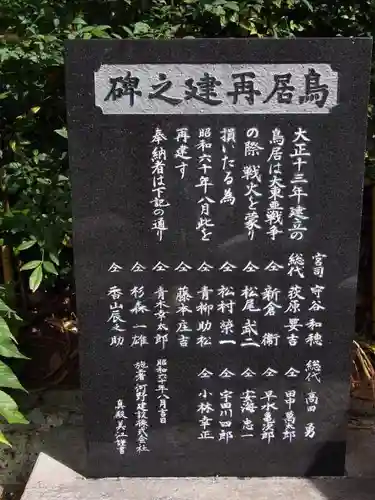 碑之建再居鳥
大正十三年建立の
鳥居は大東亜戦争
の際戦火を蒙り
損いたる為
昭和六十年八月此を
再建す
奉納者は下記の通り
宮司 守谷和穂
総代 荻原
仝 新倉 衛
仝 松尾武二
仝 松村榮一
仝 青柳助松
仝 藤本庄吉
仝 青木幸太郎
仝 杉森一雄
仝 香山辰之助
総代 高田 勇
仝 田中
仝 早水
仝 安海忠一
仝 宇田川四郎
仝 小林幸正
昭和六十年八月吉日
施者 河野建設株式会社
謹書